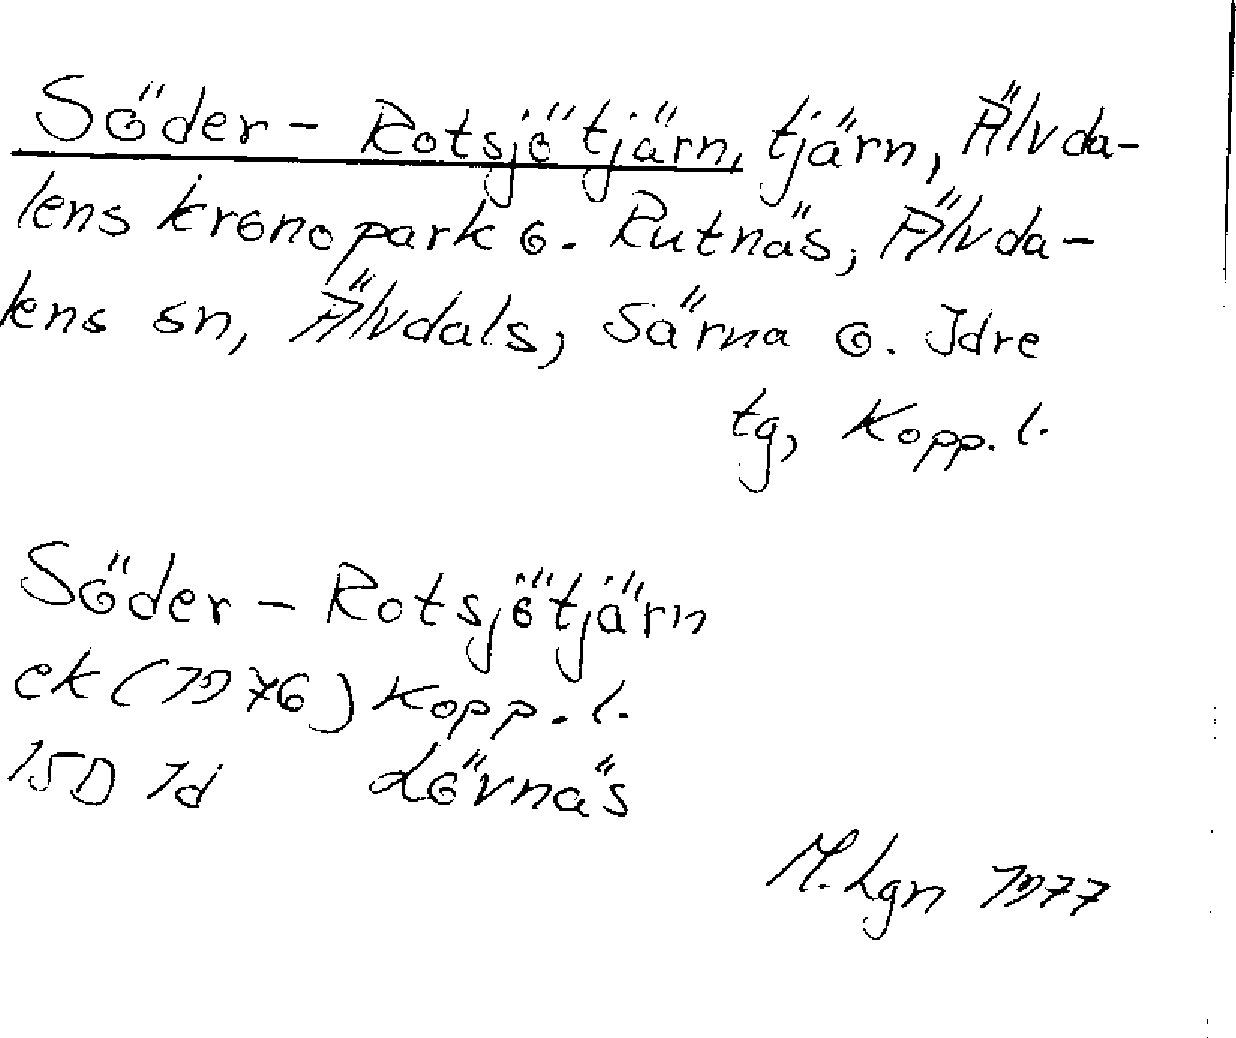 Söder-Rotsjötjärn, tjärn, Älvda-
lens kronopark o. Rutnäs, Älvda-
lens sn, Älvdals, Särna o. Idre
tg, Kopp. l.
Söder-Rotsjötjärn
ek (1976) Kopp. l.
15D 1d Lövnäs
M. Lgn 1977